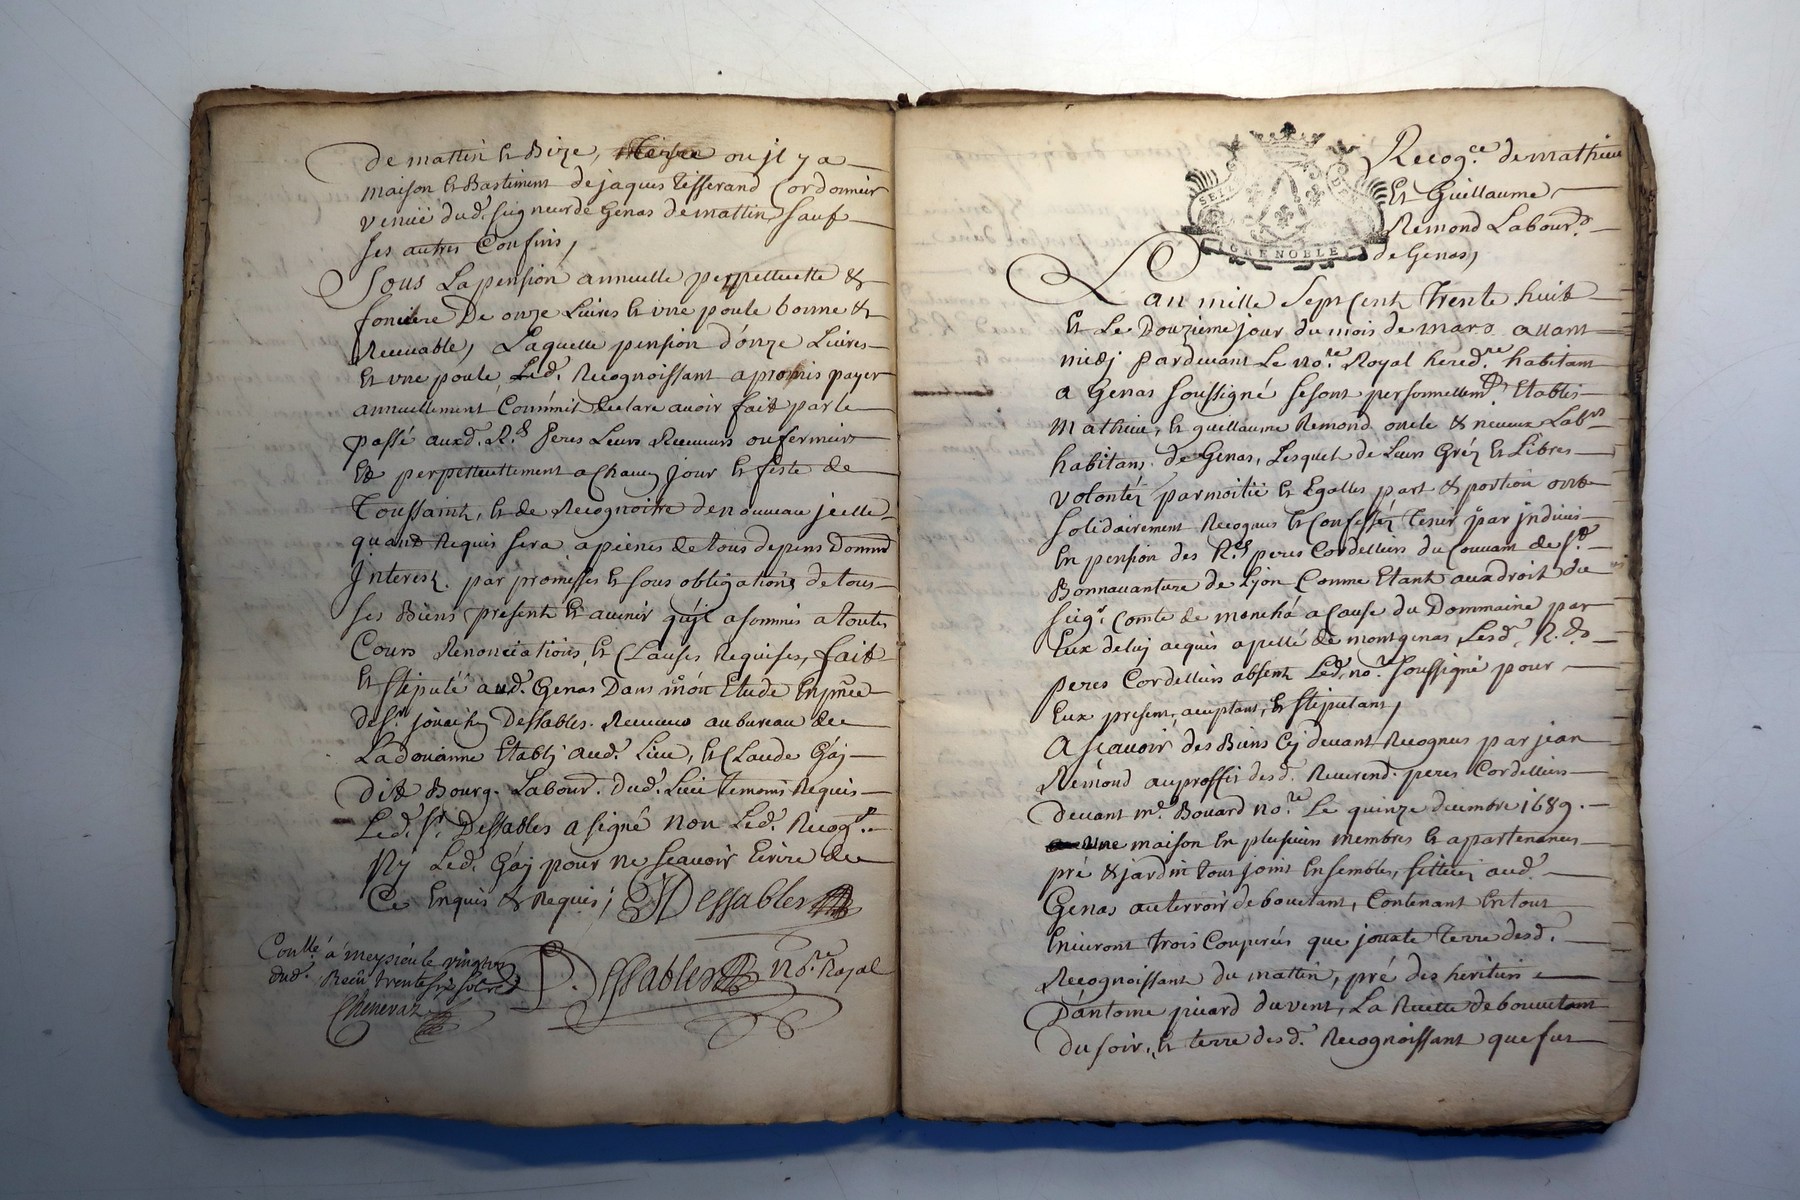 de mattin et Bize, ou jl y a
maison et Bastiment de jaques Tisserand Cordonnier
venüe dud. seigneur de Genas de mattin, sauf
ses autres Confins,
Sous La pension annuelle perpettuelle &
fonciere De onze Livres et une poule bonne &
Recevable, Laquelle pension d'onze Livres
et une poule Led. Recognoissant a promis payer
annuellement Comm'il declare avoir fait par le
passé auxd. R.ds Peres Leurs Receveurs ou fermiers
et perpettuellement a Chacun jour et feste de
Toussaint, et de Recognoitre de nouveau jcelle
quand Requis sera a peines de tous depens Domm.
Interest. par promesses et sous obligations de tous
ses Biens present et avenir qu'jl a soumis a toutes
Cours Renonciations, et Clauses Requises, fait
et stipulé aud. Genas Dans mon Etude En pñce
de Sr. joachin Dessables Receveur au bureau de
La douanne Etablj aud. Lieu, et Claude Gaj
dit Bourg. Labour. dud. Lieu temoins Requis
Led. Sr. Dessables a signé non Led. Recog.
Ny Led. Gaj pour ne sçavoir Ecrire de
Ce Enquis & Requis; Dessables
Conllé a meysieu le vingt
dud. Recu trente six sols
Chenevaz
Dessables No.re Royal
SEL DE
GRENOBLE
Recog.ce de mathieu
Et Guillaume
Remond Labour.
de Genas,
L'an mille Sept Cent Trente huit
et Le Douzieme jour du mois de mars avant
midj pardevant Le No.re Royal hered.re habitant
a Genas soussigné se sont personnellem.t Etablis
Mathieu, et guillaume Remond oncle & neveux Lab.rs
habitans de Genas, Lesquel de Leurs Gréz et Libres
volontéz par moitié et Egalles part & portion ont
solidairement Recognus et Confesséz tenir par jndivis
En pension des R.ds peres Cordelliers du Couvant de St.
Bonnavanture de Lyon Comme Etant aux droit du
seig.r Comte de moncha a Cause du Dommaine par
Eux deluj acquis apellé de montgenas Lesd. R.ds
peres Cordelliers absent Led. no.re soussigné pour
Eux present, acceptant, et stipulant,
A sçavoir des Biens Cy devant Recognus par jean
Remond au proffit desd. Reverend. peres Cordelliers
devant m.e Bouard no.re Le quinze decembre 1689.
une maison En plusieurs membres et apartenances
pré & jardin tous joint Ensembles, scittuéz aud.
Genas au terroir de bouvtant, Contenant En tout
Environt trois Couperées que jouxte terre desd.
Recognoissant du mattin, pré des heritiers
d'antoine picard du vent, La Ruette de bouvetant
du soir, et terre desd. Recognoissant que fut